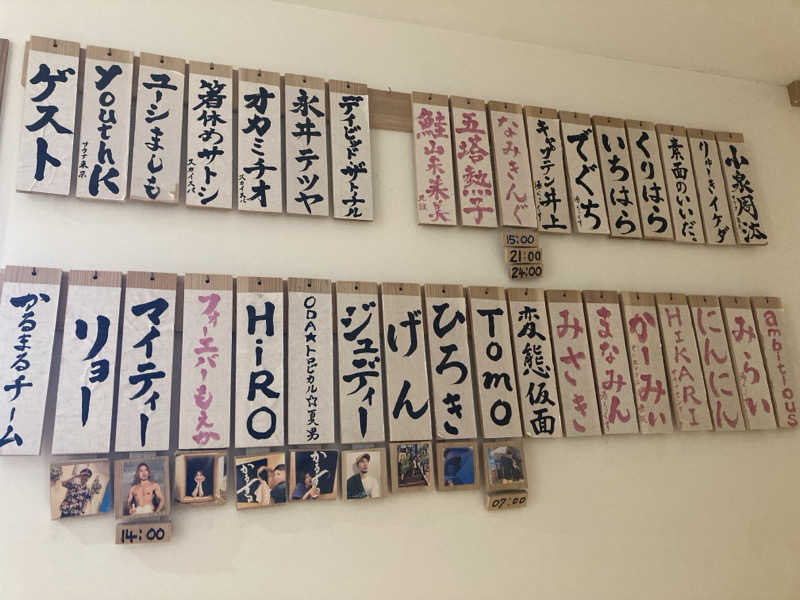 ゲスト
youthK
サウナ東京
ユーシましも
箸休めサトシ
スカイスパ
オカミチオ
スカイスパ
永井テツヤ
デイビッドザトナル
鮭山未来美
五塔熱子
なみきんぐ
キャサテン井上
でぐち
いちはら
くりはら
素面のいいだ。
りゅーきイケダ
小泉周汰
15:00
21:00
24:00
かるまるチーム
リョー
マイティー
フォーエバーもえか
HiRO
ODA★トロピカル☆夏男
ジュディー
げん
ひろき
Tomo
変態仮面
みさき
まなみん
かーみぃ
HIKARI
にんにん
みらい
ambitious
14:00
07:00